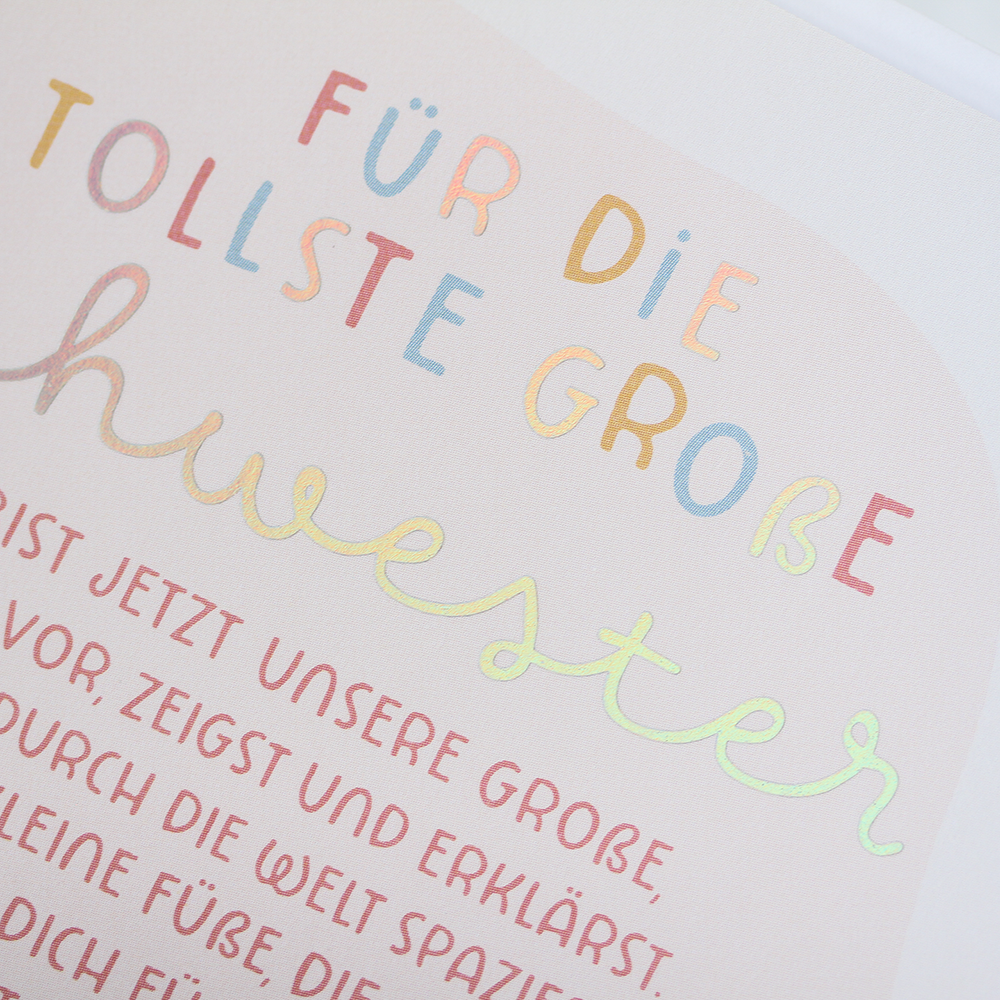 FÜR DIE
TOLLSTE GROßE
hwester
BIST JETZT UNSERE GROßE,
VOR, ZEIGST UND ERKLÄRST.
DURCH DIE WELT
KLEINE FÜßE, DIE
DICH